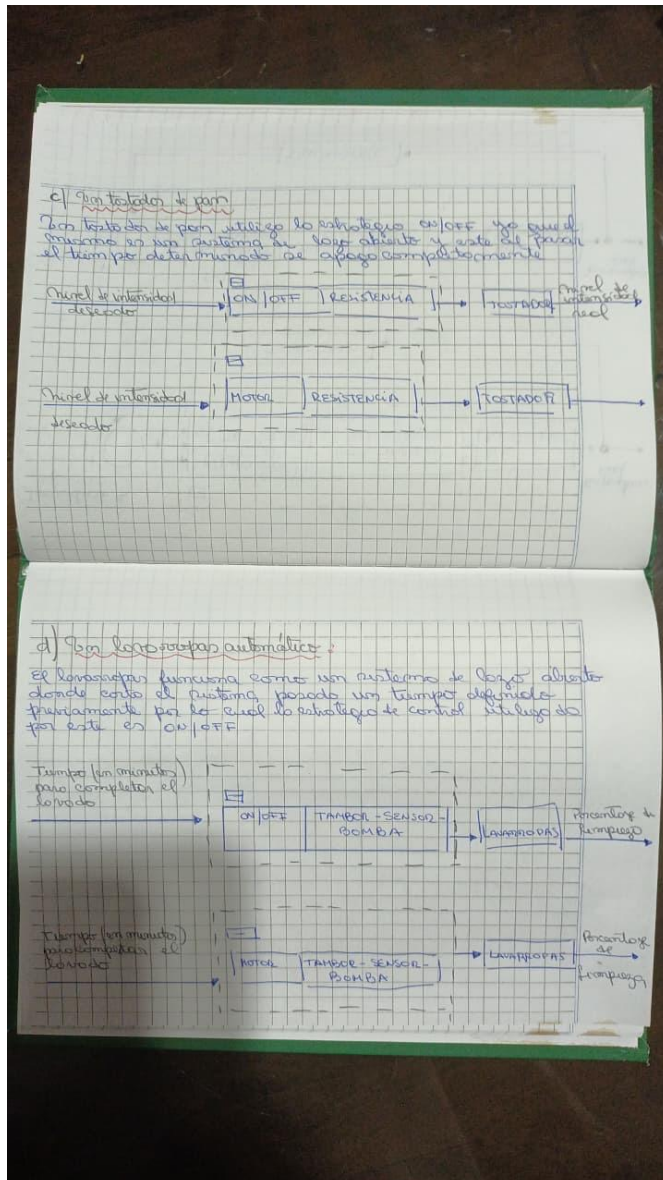 c) Un tostador de pan
Un tostador de pan utiliza la estrategia ON/OFF ya que el
mismo es un sistema de lazo abierto y este al pasar
el tiempo determinado se apaga completamente
nivel de intensidad
deseador
ON/OFF
RESISTENCIA
TOSTADOR
nivel de
intensidad
real
nivel de intensidad
deseador
MOTOR
RESISTENCIA
TOSTADOR
d) Un lavarropas automático:
El lavarropas funciona como un sistema de lazo abierto
donde corta el sistema pasado un tiempo definido
previamente por lo cual la estrategia de control utilizada
por este es ON/OFF
Tiempo (en minutos)
para completar el
lavado
ON/OFF
TAMBOR-SENSOR-
BOMBA
LAVARROPAS
Porcentaje de
limpieza
Tiempo (en minutos)
para completar el
lavado
MOTOR
TAMBOR-SENSOR-
BOMBA
LAVARROPAS
Porcentaje
de
limpieza